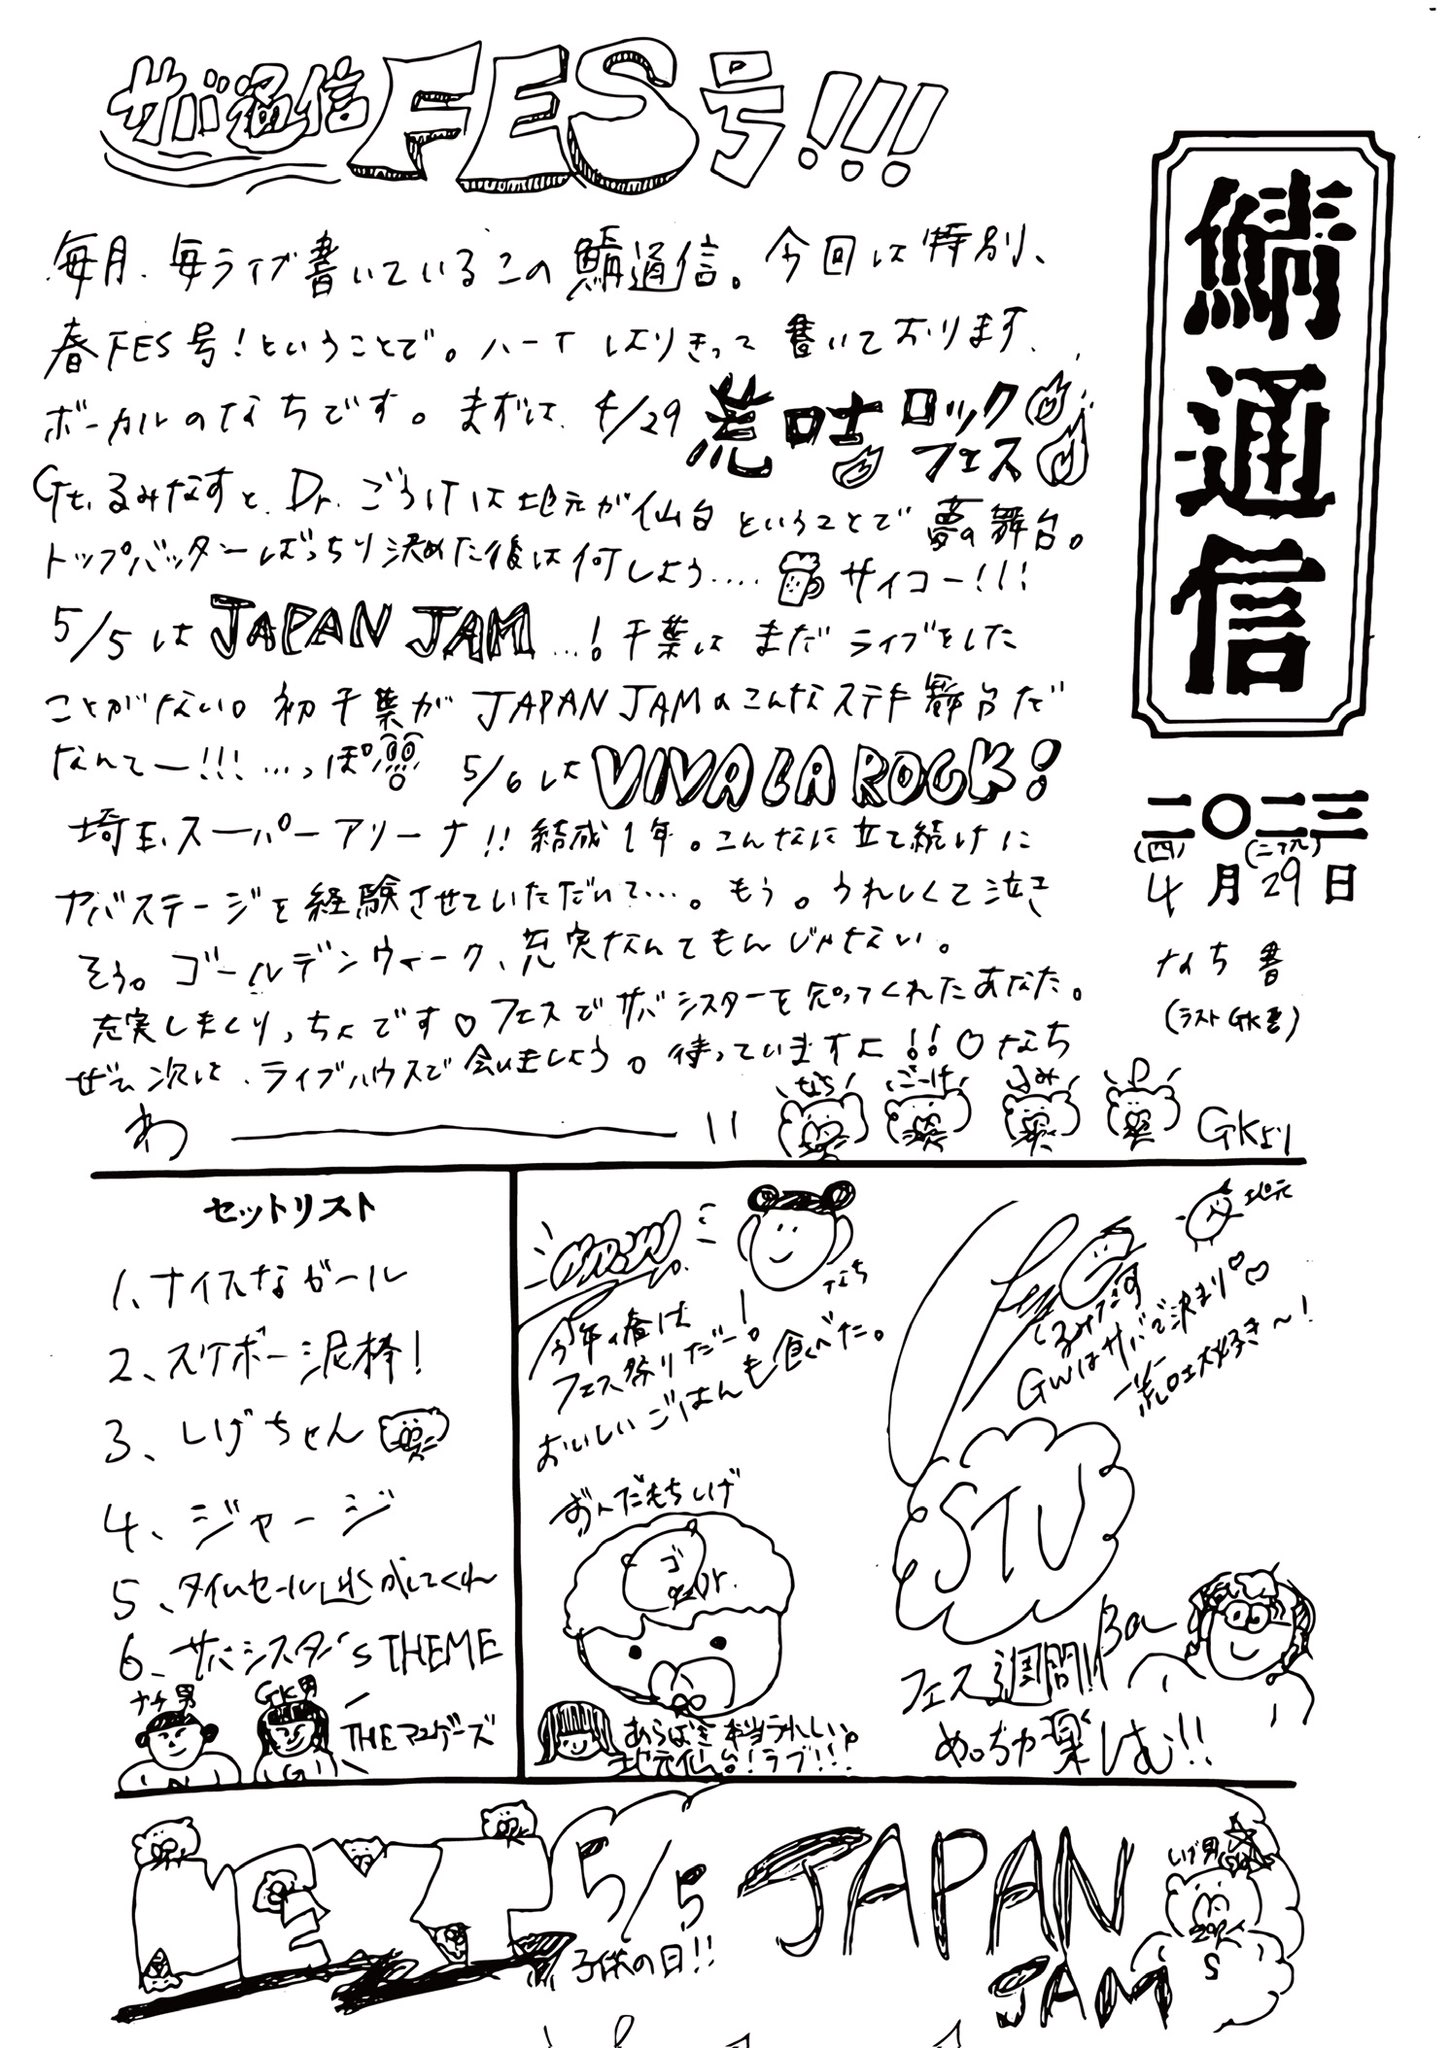 サバ通信FES号!!!
鯖通信
二〇二三
(四)
4月29日
なち書
(ラストGK書)
毎月、毎ライブ書いているこの鯖通信。今回は特別、
春FES号!ということで。ハート しぼりきって書いております、
ボーカルのなちです。まずは、4/29 荒吐ロックフェス
Gt.るみなすと、Dr.ごうけは地元が仙台ということで夢の舞台。
トップバッターばっちり決めた後は何しよう.... サイコー!!!
5/5は JAPAN JAM...!千葉はまだライブをした
ことがない。初千葉がJAPAN JAMのこんなステキ舞台だ
なんてー!!!...っぽ 5/6は VIVA LA ROCK!
埼玉スーパーアリーナ!!結成1年。こんなに立て続けに
ヤバステージを経験させていただいて...。もう。うれしくて泣き
そう。ゴールデンウィーク、充実なんてもんじゃない。
充実しまくりっちょです♡フェスでサバシスターを知ってくれたあなた。
ぜひ次は、ライブハウスで会いましょう。待っていますよ!!♡なち
わーーー!!
なち ごーけ るみ GKより
セットリスト
1、ナイスなガール
2、スケボー泥棒!
3、しげちゃん
4、ジャージ
5、タイムセール逃がしてくれ
6、サバシスター's THEME
ナチ男 GK男
THEマユゲーズ
なち
今年の春は
フェス祭りだー!
おいしいごはんも食べた。
地元
GWはサバで決まり♡♡
荒吐大好き〜!
ずんだもちしげ
ゴ Dr.
あらばき本当うれしい。
地元仙台!ラブ!!!
STU
Ba
フェス週間!!
めっちゃ楽しむ!!
NEXT
5/5 JAPAN
JAM
子供の日!!
しげ男
S